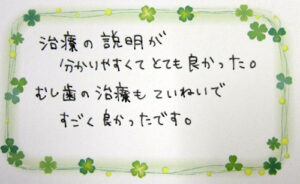 治療の説明が
分かりやすくてとても良かった。
むし歯の治療もていねいで
すごく良かったです。